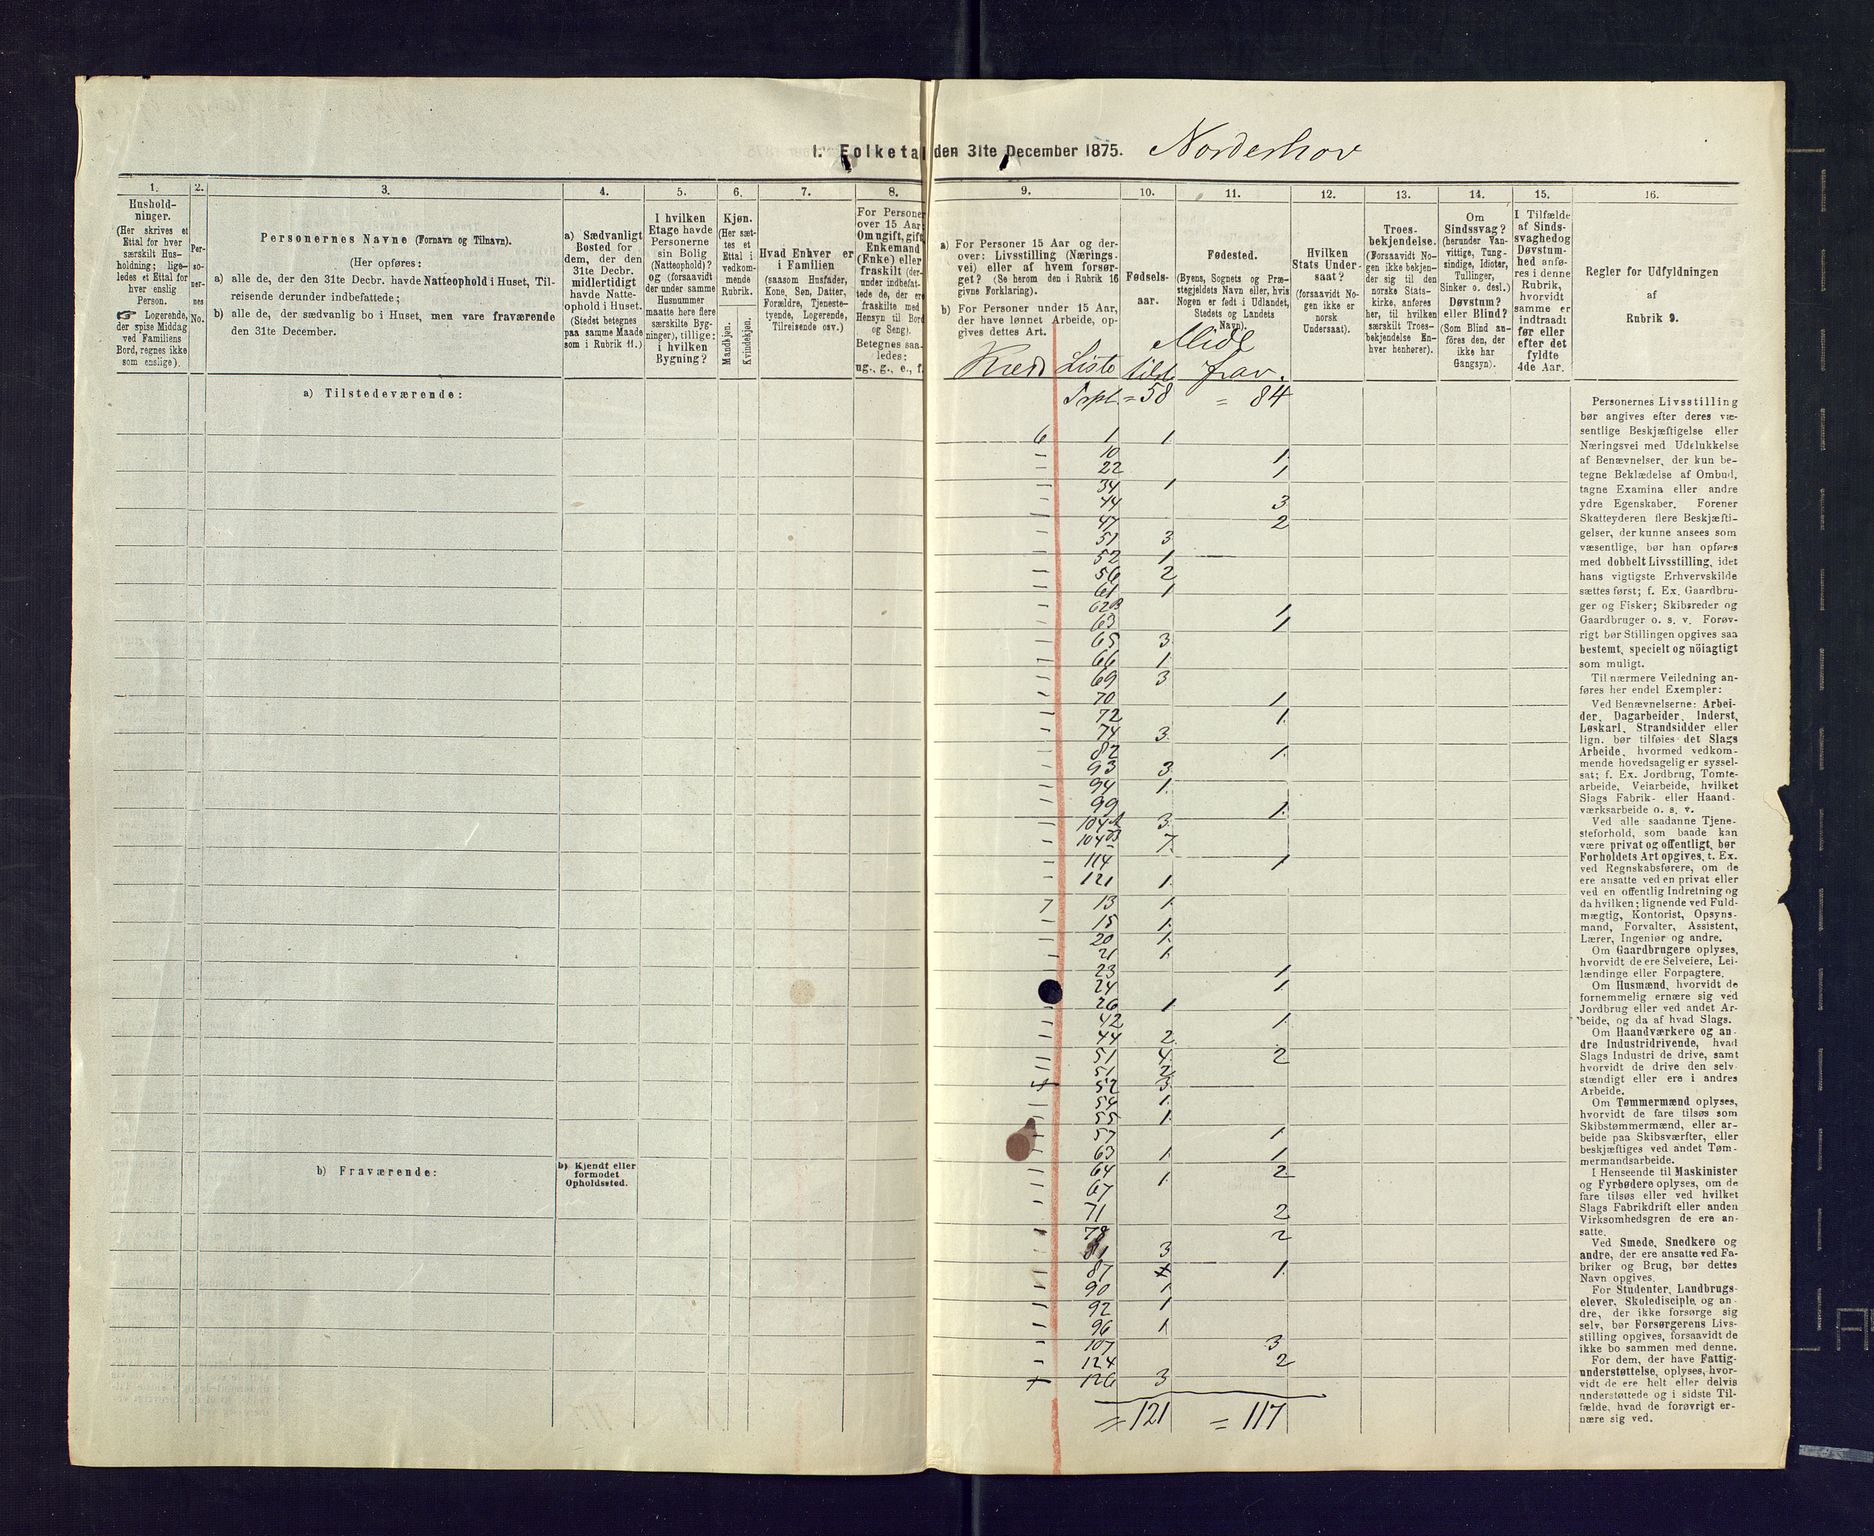 1. Folketal den 31te December 1875. Norderhov
1.
Husholdninger.
(Her skrives et
Ettal for hver
særskilt Husholdning;
ligeledes et Ettal for
hver enslig
Person.
☞ Logerende,
der spise Middag
ved Familiens
Bord, regnes ikke
som enslige).
2.
Personernes
No.
3.
Personernes Navne (Fornavn og Tilnavn).
(Her opføres:
a) alle de, der den 31te Decbr. havde Natteophold i Huset, Tilreisende derunder indbefattede;
b) alle de, der sædvanlig bo i Huset, men vare fraværende
den 31te December.
4.
a) Sædvanligt
Bosted for
dem, der den
31te Decbr.
midlertidigt
havde Natteophold i Huset.
(Stedet betegnes
paa samme Maade
som i Rubrik 11.)
5.
I hvilken
Etage havde
Personerne
sin Bolig
(Natteophold)?
og (forsaavidt
der under samme
Husnummer
maatte høre flere
særskilte Bygninger), tillige:
i hvilken
Bygning?
6.
Kjøn.
(Her sættes et
Ettal i
vedkommende
Rubrik.
Mandkjøn.
Kvindekjøn.
7.
Hvad Enhver er
i Familien
(saasom Husfader,
Kone, Søn, Datter,
Forældre, Tjenestetyende, Logerende,
Tilreisende osv.)
8.
For Personer
over 15 Aar:
Om ugift, gift,
Enkemand
(Enke) eller
fraskilt (derunder indbefattede de, der ere
fraskilte med
Hensyn til Bord
og Seng).
Betegnes saaledes:
ug., g., e., f.
9.
a) For Personer 15 Aar og derover: Livsstilling (Næringsvei) eller af hvem forsørget? (Se herom den i Rubrik 16
givne Forklaring).
b) For Personer under 15 Aar,
der have lønnet Arbeide, opgives dettes Art.
10.
Fødselsaar.
11.
Fødested.
(Byens, Sognets og Præstegjeldets Navn eller, hvis
Nogen er født i Udlandet,
Stedets og Landets
Navn).
12.
Hvilken
Stats Undersaat?
(forsaavidt Nogen ikke er
norsk
Undersaat).
13.
Troesbekjendelse.
(Forsaavidt Nogen ikke bekjender sig til den
norske Statskirke, anføres
her, til hvilken
særskilt Troesbekjendelse Enhver henhører).
14.
Om
Sindssvag?
(herunder Vanvittige, Tungsindige, Idioter,
Tullinger,
Sinker o. desl.)
Døvstum?
eller Blind?
(Som Blind anføres den, der
ikke har
Gangsyn).
15.
I Tilfælde
af Sindssvaghed og
Døvstumhed anføres i denne
Rubrik,
hvorvidt
samme er
indtraadt
før eller
efter det
fyldte
4de Aar.
16.
Regler for Udfyldningen
af
Rubrik 9.
Midl
Kred Liste tilst. frav.
Trpt. = 58 = 84
a) Tilstedeværende:
6 1 1
" 10 1
" 22 1
" 34 1
" 44 3
" 47 2
" 51 3
" 52 1
" 56 2
" 61 1
" 62B 1
" 63 1
" 65 3
" 66 1
" 69 3
" 70 1
" 72 1
" 74 3
" 82 1
" 93 3
" 94 1
" 99 1
" 104A 3
" 104B 7
" 114 1
" 121 1
7 13 1
" 15 1
" 20 1
" 21 1
" 23 1
24 1
" 26 1
" 42 1
" 44 2
" 51 4 2
" 51 2
" 52 3
" 54 1
" 55 1
" 57 1
" 63 1 1
" 64 2
" 67 1
" 71 2
" 78 2
" 81 3
" 87 1
" 90 1
" 92 1
" 96 1
" 107 3
" 124 2
" 126 3
= 121 = 117
b) Fraværende:
b) Kjendt eller
formodet
Opholdssted.
Personernes Livsstilling
bør angives efter deres væsentlige Beskjæftigelse eller
Næringsvei med Udelukkelse
af Benævnelser, der kun betegne Beklædelse af Ombud,
tagne Examina eller andre
ydre Egenskaber. Forener
Skatteyderen flere Beskjæftigelser, der kunne ansees som
væsentlige, bør han opføres
med dobbelt Livsstilling, idet
hans vigtigste Erhvervskilde
sættes først; f. Ex. Gaardbruger og Fisker; Skibsreder og
Gaardbruger o. s. v. Forøvrigt bør Stillingen opgives saa
bestemt, specielt og nöiagtigt
som muligt.
Til nærmere Veiledning anføres her endel Exempler:
Ved Benævnelserne: Arbeider, Dagarbeider, Inderst,
Løskarl, Strandsidder eller
lign. bør tilføies det Slags
Arbeide, hvormed vedkommende hovedsagelig er sysselsat; f. Ex. Jordbrug, Tomtearbeide, Veiarbeide, hvilket
Slags Fabrik- eller Haandværksarbeide o. s. v.
Ved alle saadanne Tjenesteforhold, som baade kan
være privat og offentligt, bør
Forholdets Art opgives, t. Ex.
ved Regnskabsførere, om de
ere ansatte ved en privat eller
ved en offentlig Indretning og
da hvilken; lignende ved Fuldmægtig, Kontorist, Opsynsmand, Forvalter, Assistent,
Lærer, Ingeniør og andre.
Om Gaardbrugere oplyses,
hvorvidt de ere Selveiere, Leilændinge eller Forpagtere.
Om Husmænd, hvorvidt de
fornemmelig ernære sig ved
Jordbrug eller ved andet Arbeide, og da af hvad Slags.
Om Haandværkere og andre Industridrivende, hvad
Slags Industri de drive, samt
hvorvidt de drive den selvstændigt eller ere i andres
Arbeide.
Om Tømmermænd oplyses,
hvorvidt de fare tilsøs som
Skibstømmermænd, eller arbeide paa Skibsværfter, eller
beskjæftiges ved andet Tømmermandsarbeide.
I Henseende til Maskinister
og Fyrbødere oplyses, om de
fare tilsøs eller ved hvilket
Slags Fabrikdrift eller anden
Virksomhedsgren de ere ansatte.
Ved Smede, Snedkere og
andre, der ere ansatte ved Fabriker og Brug, bør dettes
Navn opgives.
For Studenter, Landbrugselever, Skoledisciple og andre, der ikke forsørge sig
selv, bør Forsørgerens Livsstilling opgives, forsaavidt de
ikke bo sammen med denne.
For dem, der have Fattigunderstøttelse, oplyses, hvorvidt de ere helt eller delvis
understøttede og i sidste Tilfælde, hvad de forøvrigt ernære sig ved.